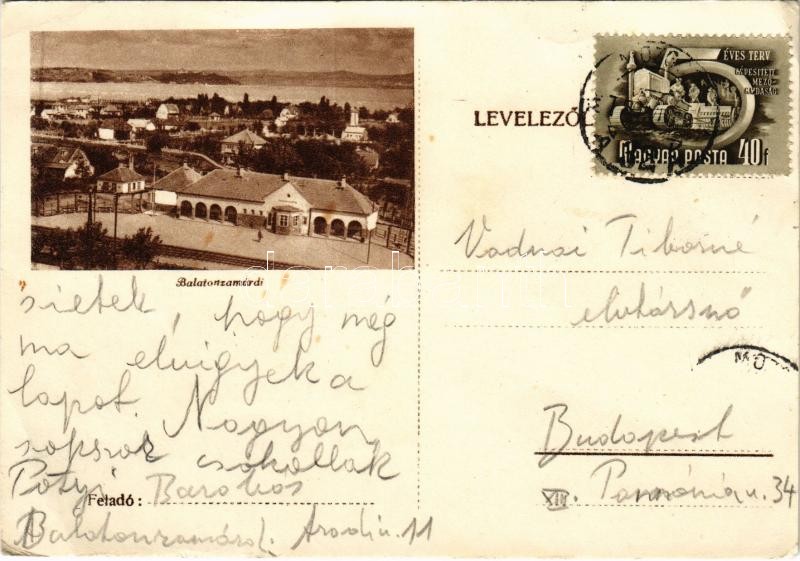 ÉVES TERV
GÉPESÍTETT
MEZŐ
GAZDASÁG
MAGYAR POSTA 40f
LEVELEZŐL
Balatonzamárdi
sietek, hogy még
ma elvigyék a
lapot. Nagyon
sokszor csókollak
Potyi
Feladó: Barabás
Balatonzamárdi. Aradi u. 11
Vadnai Tiborné
elvtársnő
MO
Budapest
XIII. Pannónia u. 34